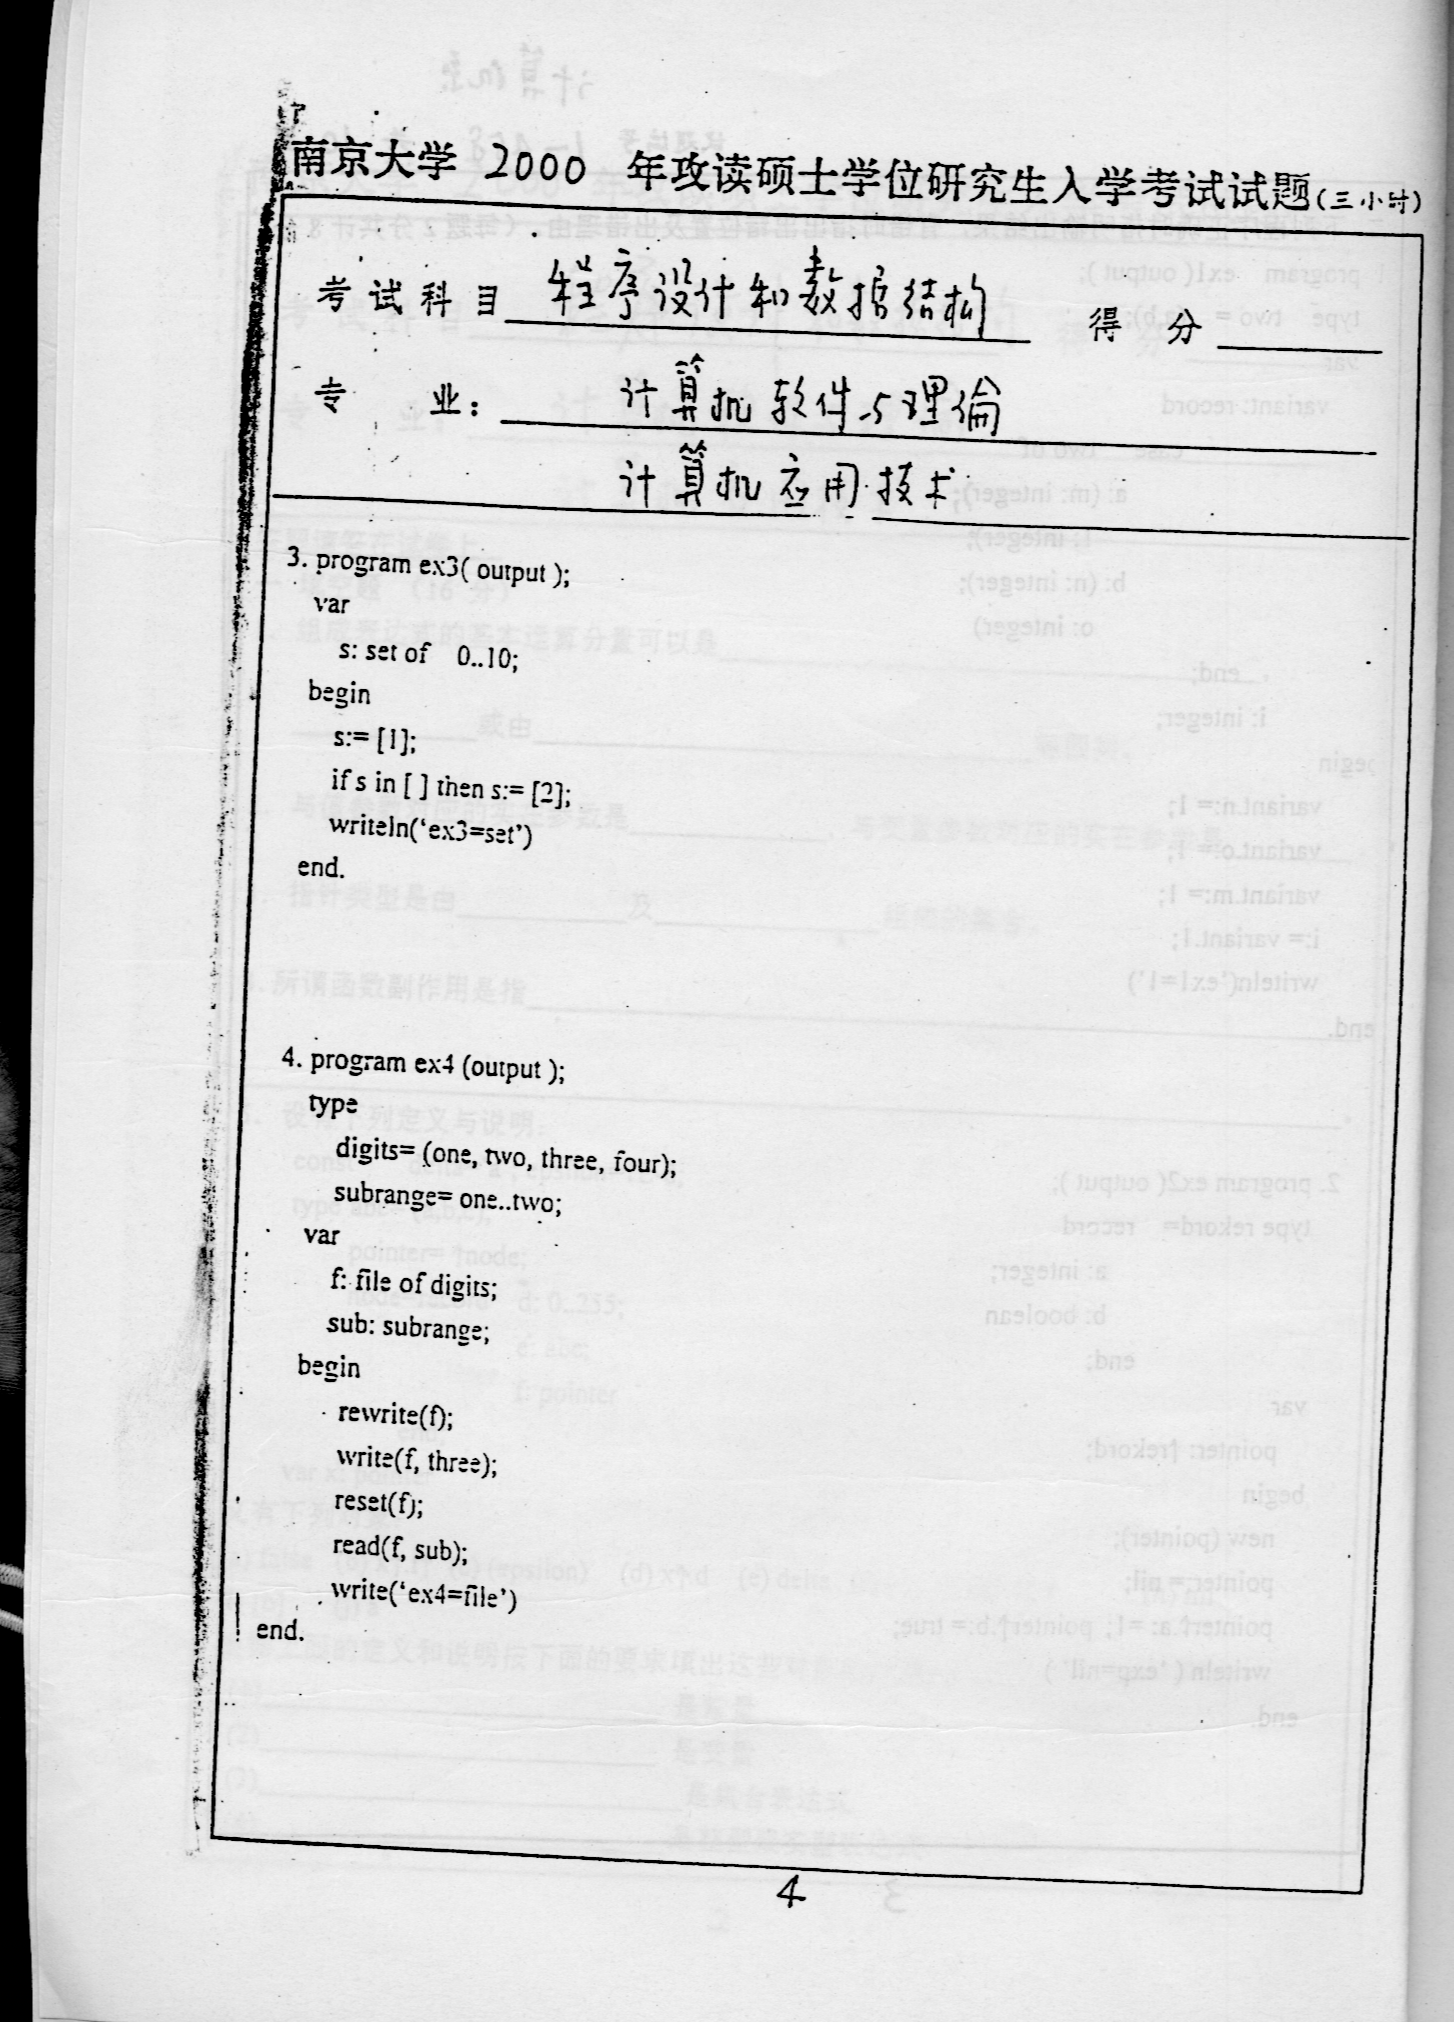 南京大学 2000 年攻读硕士学位研究生入学考试试题(三小时)
考试科目 程序设计和数据结构 得 分
专 业: 计算机软件与理论
计算机应用技术
3. program ex3( output );
var
s: set of 0..10;
begin
s:= [1];
if s in [ ] then s:= [2];
writeln(‘ex3=set’)
end.
4. program ex4 (output );
type
digits= (one, two, three, four);
subrange= one..two;
var
f: file of digits;
sub: subrange;
begin
rewrite(f);
write(f, three);
reset(f);
read(f, sub);
write(‘ex4=file’)
end.
4